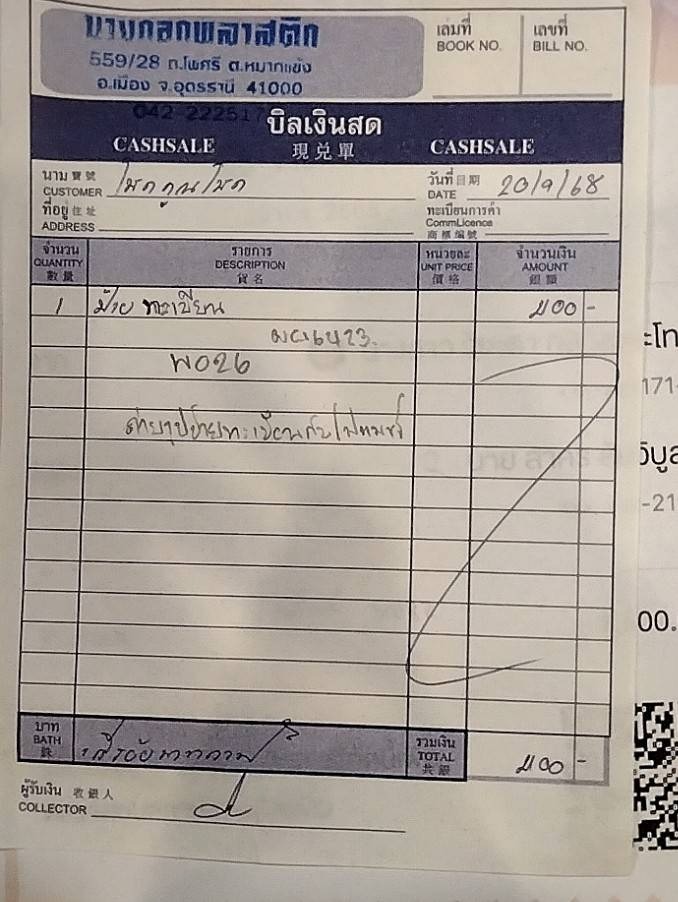 บางกอกพลาสติก
559/28 ถ.โพศรี ต.หมากแข้ง
อ.เมือง จ.อุดรธานี 41000
042-22251
เล่มที่ เลขที่
BOOK NO. BILL NO.
บิลเงินสด
CASHSALE 現兌單 CASHSALE
นาม 寶號 โชคคูณโชค วันที่ 日期 20/9/68
CUSTOMER DATE
ที่อยู่ 住址 ทะเบียนการค้า
ADDRESS CommLicence
商標編號
จำนวน รายการ หน่วยละ จำนวนเงิน
QUANTITY DESCRIPTION UNIT PRICE AMOUNT
數量 貨名 價格 銀額
1 ป้ายทะเบียน 400 -
6423.
W026
บาท สี่ร้อยบาทถ้วน รวมเงิน 400 -
BATH TOTAL
銖 共銀
ผู้รับเงิน 收銀人
COLLECTOR
ะโท
171-
วิบูล
-21
00.